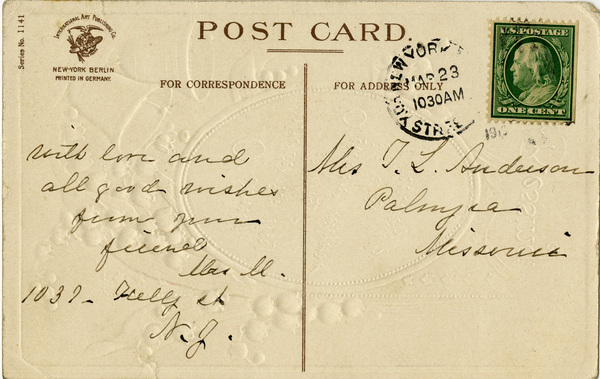 Series No. 1141
International Art Publishing Co.
NEW-YORK BERLIN
PRINTED IN GERMANY.
POST CARD.
FOR CORRESPONDENCE
FOR ADDRESS ONLY
NEW YORK
MAR 23
1030AM
U.S. POSTAGE
ONE CENT
with love and
all good wishes
from your
friend
Mrs M.
1037 - Kelly st
N.Y.
Mrs T. L. Anderson
Palmyra
Missouri